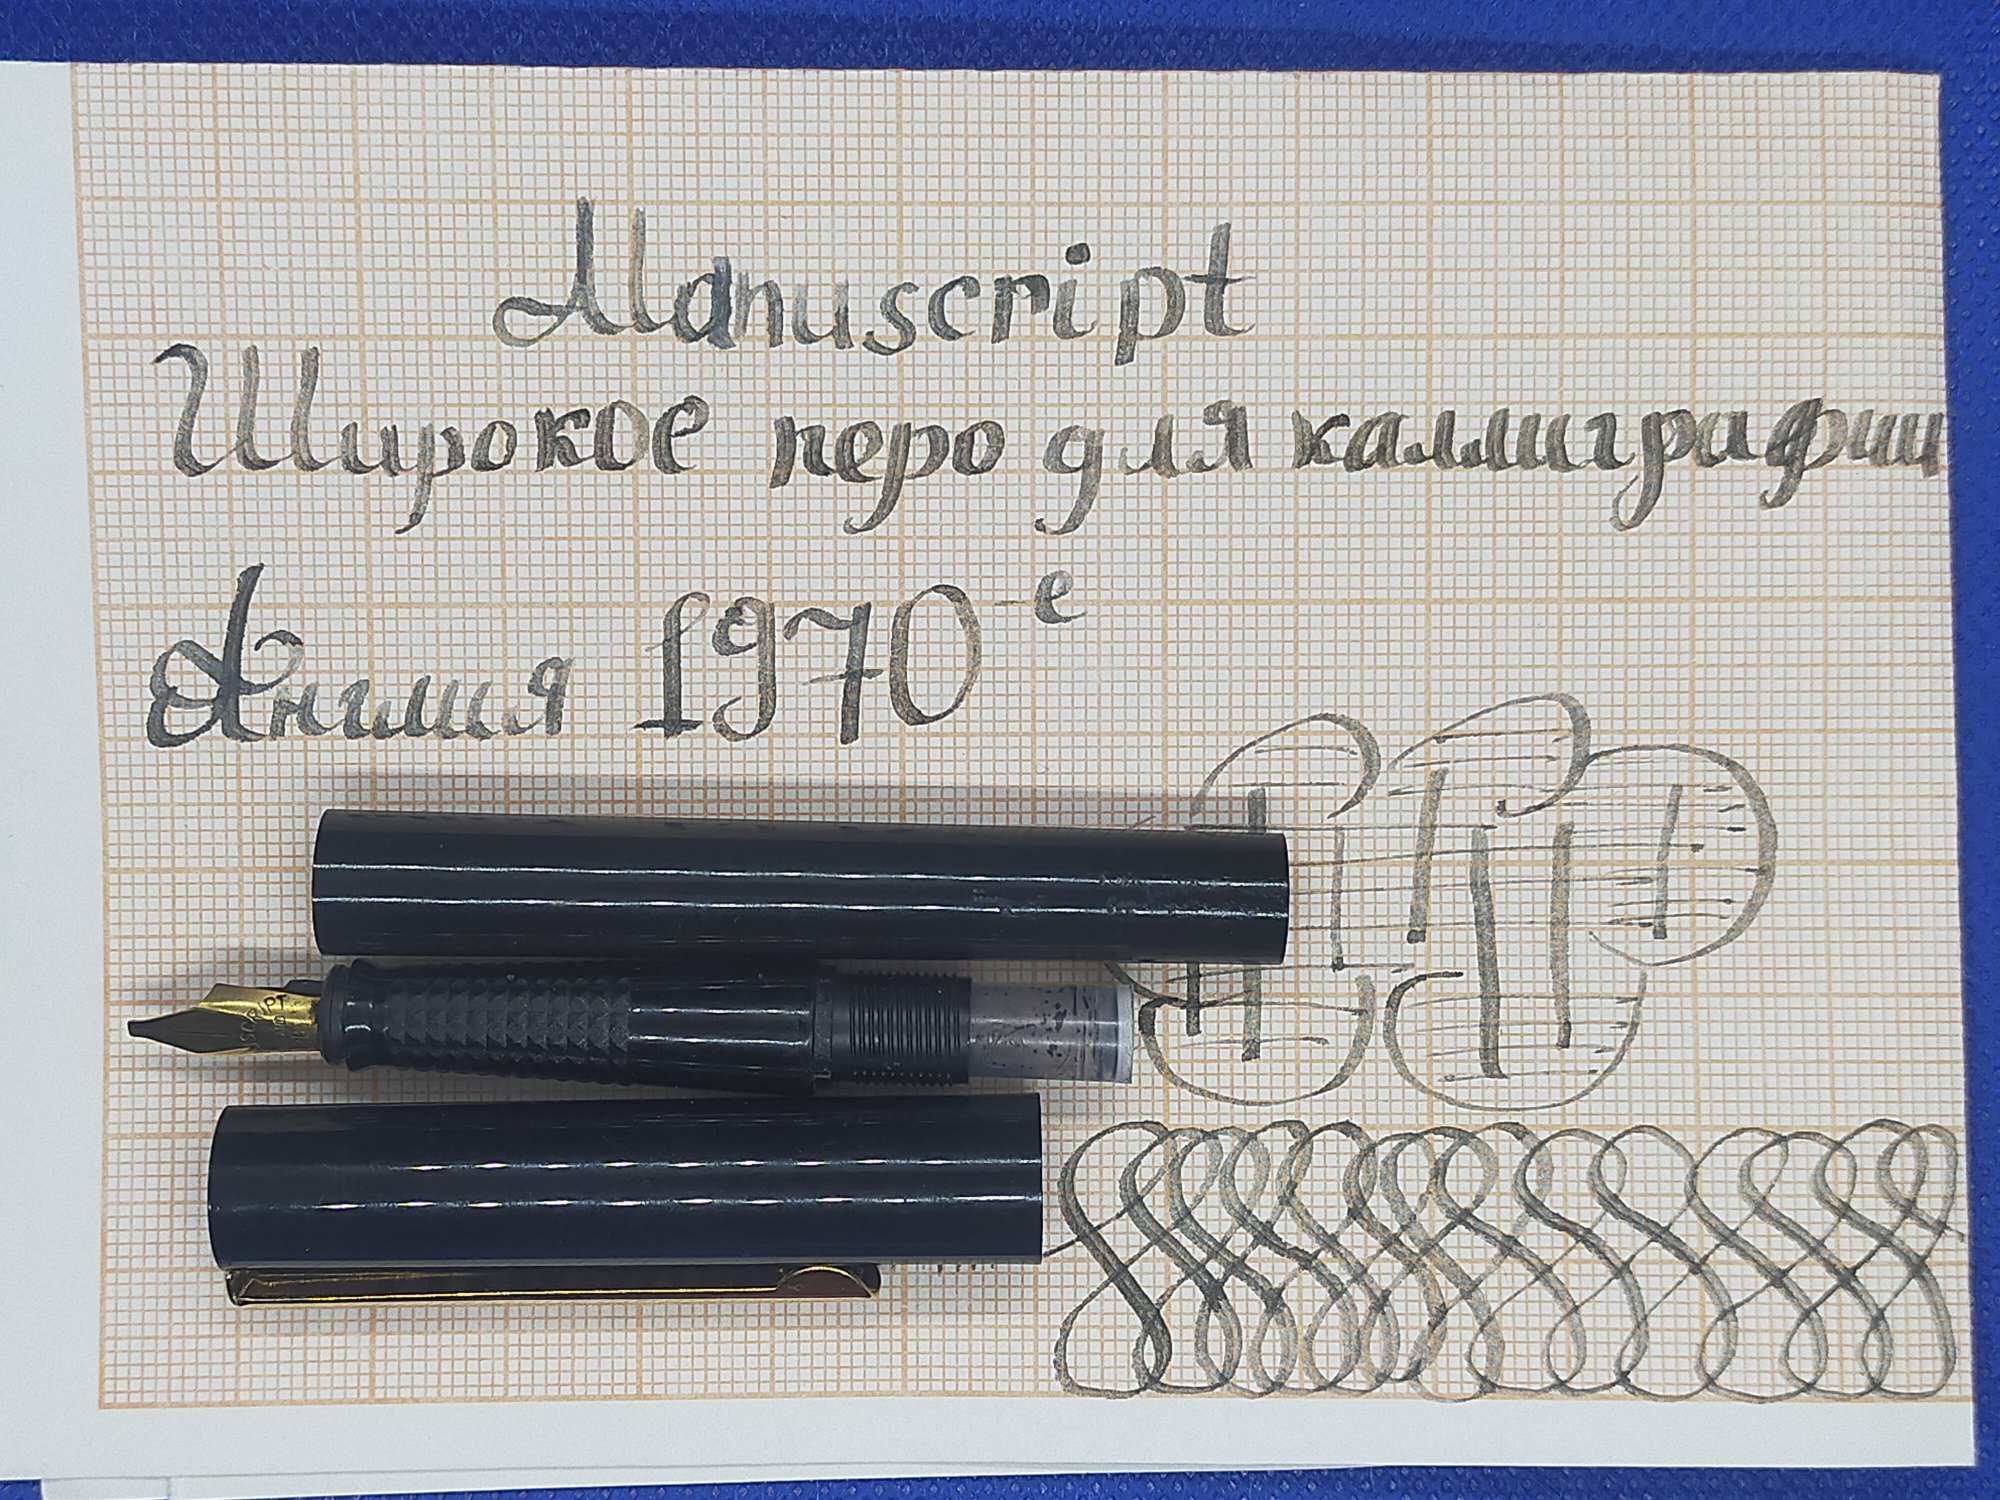 Manuscript
Широкое перо для каллиграфии
Англия 1970-е